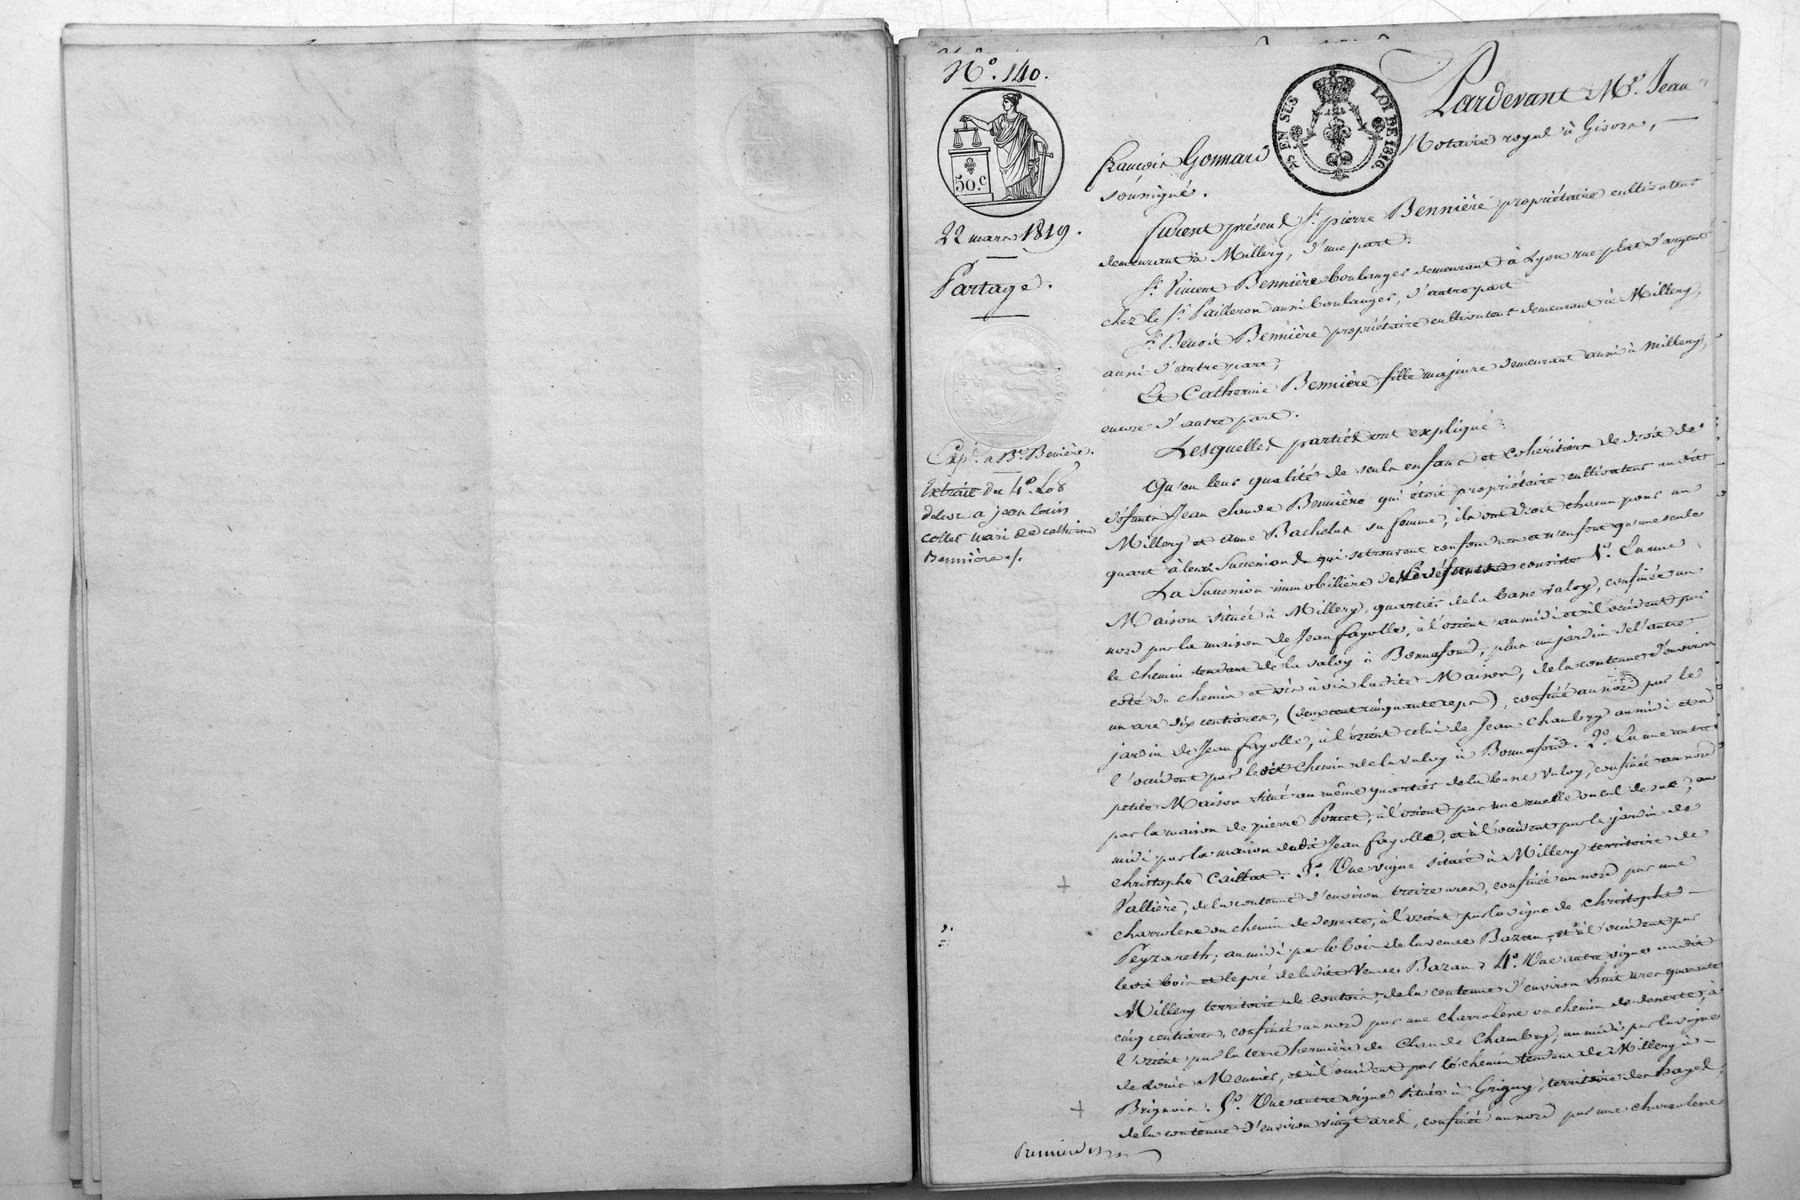 N.° 140.
50.c
EN SUS
LOI DE 1816.
22 mars 1819.
Partage.
Exp.n a B.t Benière.
Extrait du 4.e Lot
délivré a jean Louis
collet mari de catherine
Bennière /.
Pardevant M.e Jean
françois Gonnard Notaire royal à Givors,
soussigné.
furent présens S.r pierre Bennière propriétaire cultivateur
demeurant à Millery, d'une part.
S.r Vincent Bennière boulanger demeurant à Lyon rue plat d'argent
chez le S.r Pailleron aussi boulanger, d'autre part
S.r Benoit Bennière propriétaire cultivateur demeurant à Millery,
aussi d'autre part,
Et Catherine Bennière fille majeure demeurant aussi à Millery,
encore d'autre part.
Lesquelles parties ont expliqué:
Qu'en leur qualités de seuls enfans et cohéritiers de droit de
défunts Jean claude Bennière qui étoit propriétaire cultivateur audit
Millery et anne Bachelut sa femme, ils ont droit chacun pour un
quart à leurs successions qui se trouvent confondues et n'en font qu'une seule
La Succession immobilière desdits défunts consiste 1.° En une
Maison située à Millery, quartier de la basse valoy, confinée au
nord par la maison de Jean fayolle, à l'orient au midi et à l'occident par
le chemin tendant de la valoy à Bonnafond; plus un jardin de l'autre
coté du chemin et vis à vis ladite Maison, de la contenue d'environ
un are dix centiares, (deux cent cinquante ), confiné au nord par le
jardin de Jean fayolle, à l'orient celui de Jean Chambry au midi et à
l'occident par ledit chemin de la valoy à Bonnafond. 2.° En une autre
petite Maison située au même quartier de la basse valoy, confinée au nord
par la maison de pierre Poncet, à l'orient par une ruelle ou cul de sac, au
midi par la maison dudit Jean fayolle, et à l'occident par le jardin de
christophe Caillat. 3.° Une vigne située à Millery territoire de
Vallière, de la contenue d'environ treize ares, confinée au nord par une
charrolene ou chemin de desserte, à l'orient par la vigne de christophe
Peyzareth, au midi par le bois de la veuve Bazan, et à l'occident par
bois et le pré de ladite veuve Bazan. 4.° Une autre vigne audit
Millery territoire de , de la contenue d'environ huit ares quarante
cinq centiares, confinée au nord par une charrolene ou chemin de desserte, à
l'orient par la terre hermière de Claude Chambry, au midi par la vigne
de Louis Meunier, et à l'occident par le chemin tendant de Millery à
Brignais. 5.° Une autre vigne située à Grigny, territoire des hayes,
de la contenue d'environ vingt ares, confinée au nord par une charrolene